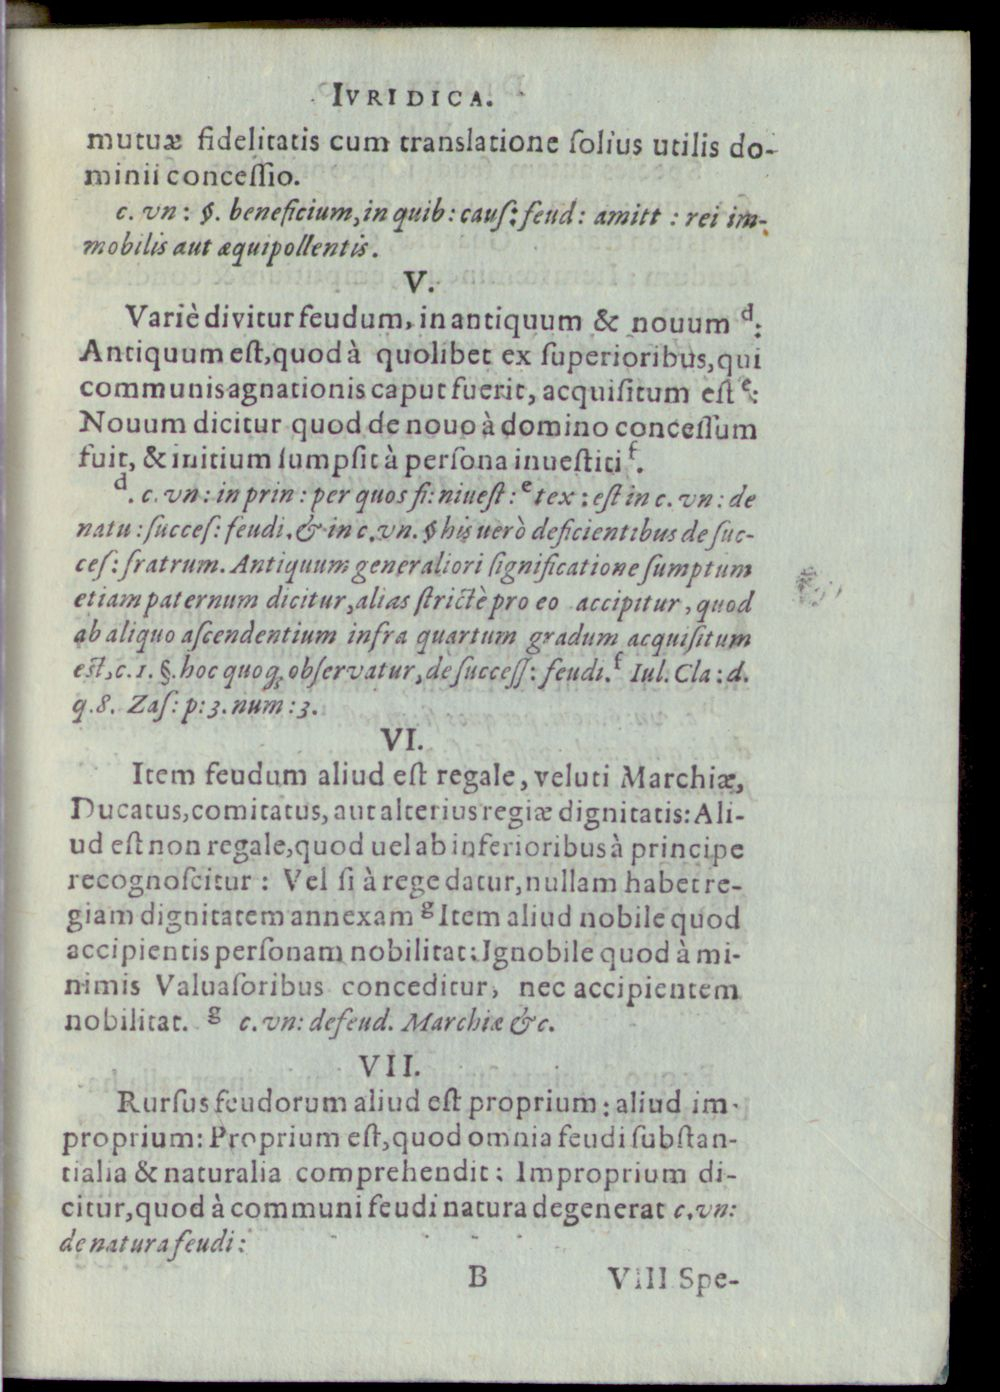 IVRIDICA.
mutuæ fidelitatis cum translatione ſolius utilis do-
minii conceſſio.
c. vn: §. beneficium, in quib: cauſ: feud: amitt: rei im-
mobilis aut æquipollentis.
V.
Variè dividitur feudum, in antiquum & nouum d:
Antiquum eſt, quod à quolibet ex ſuperioribus, qui
communis agnationis caput fuerit, acquiſitum eſt e:
Nouum dicitur quod de nouo à domino conceſſum
fuit, & initium ſumpſit à perſona inueſtiti f.
d. c. vn: in prin: per quos fi: niueſt: e tex: eſt in c. vn: de
natu: ſucceſ: feudi. & in c. vn. § his uerò deficientibus de ſuc-
ceſ: fratrum. Antiquum generaliori ſignificatione ſumptum
etiam paternum dicitur, alias ſtrictè pro eo accipitur, quod
ab aliquo aſcendentium infra quartum gradum acquiſitum
eſt, c. 1. §. hoc quoq; obſervatur, de ſucceſſ: feudi. f Iul. Cla: d.
q. 8. Zaſ: p: 3. num: 3.
VI.
Item feudum aliud eſt regale, veluti Marchiæ,
Ducatus, comitatus, aut alterius regiæ dignitatis: Ali-
ud eſt non regale, quod uel ab inferioribus à principe
recognoſcitur: Vel ſi à rege datur, nullam habet re-
giam dignitatem annexam g Item aliud nobile quod
accipientis perſonam nobilitat: Ignobile quod à mi-
nimis Valuaſoribus conceditur, nec accipientem
nobilitat. g c. vn: de feud. Marchiæ &c.
VII.
Rurſus feudorum aliud eſt proprium: aliud im-
proprium: Proprium eſt, quod omnia feudi ſubſtan-
tialia & naturalia comprehendit: Improprium di-
citur, quod à communi feudi natura degenerat c. vn:
de natura feudi:
B VIII Spe-